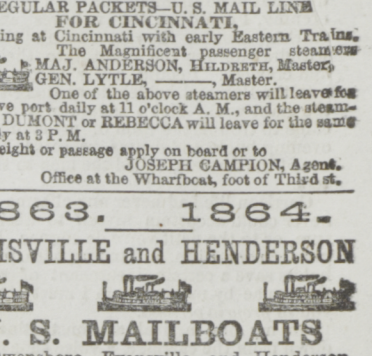 EGULAR PACKETS—U. S. MAIL LINE
FOR CINCINNATI,
ing at Cincinnati with early Eastern Trains.
The Magnificent passenger steamers
MAJ. ANDERSON, HILDRETH, Master,
GEN. LYTLE, ———, Master.
One of the above steamers will leave for
ve port daily at 11 o'clock A. M., and the steam-
DUMONT or REBECCA will leave for the same
y at 3 P. M.
eight or passage apply on board or to
JOSEPH CAMPION, Agent.
Office at the Wharfboat, foot of Third st.
863. 1864.
ISVILLE and HENDERSON
. S. MAILBOATS